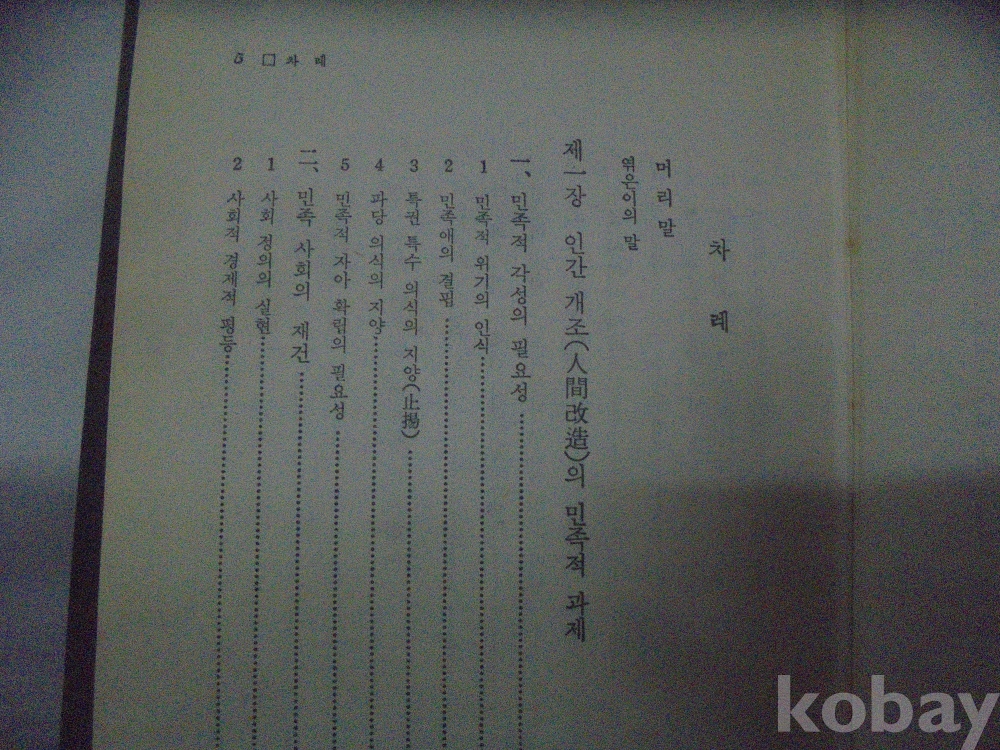 5 □ 차 례
차 례
머 리 말
엮은이의 말
제一장 인간 개조(人間改造)의 민족적 과제
一、 민족적 각성의 필요성
1 민족적 위기의 인식
2 민족애의 결핍
3 특권 특수 의식의 지양(止揚)
4 파당 의식의 지양
5 민족적 자아 확립의 필요성
二、 민족 사회의 재건
1 사회 정의의 실현
2 사회적 경제적 평등
kobay